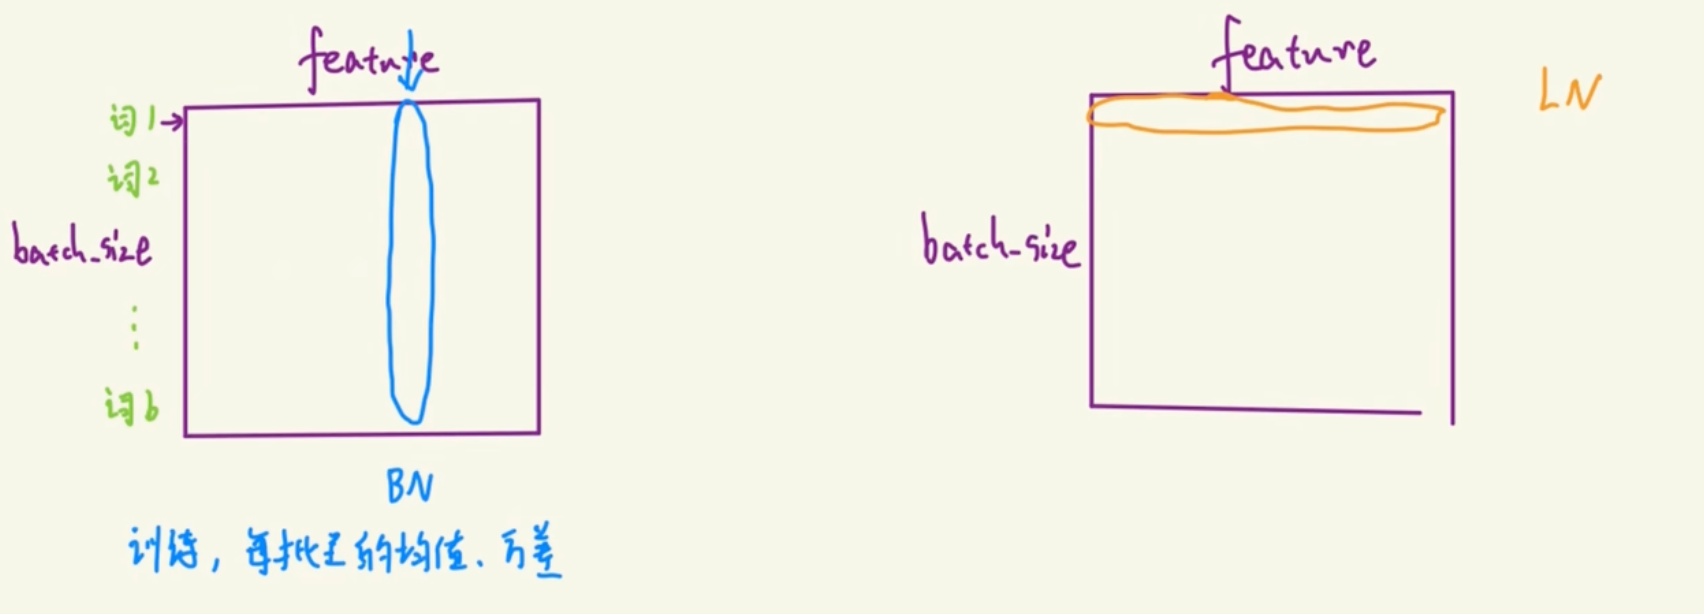 feature
词1→
词2
batch_size
⋮
词b
BN
训练,每批量的均值、方差
feature
LN
batch_size